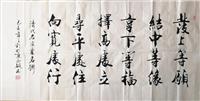 發上等願
結中等緣
享下等福
擇高處立
尋平處住
向寬處行
清代左宗棠